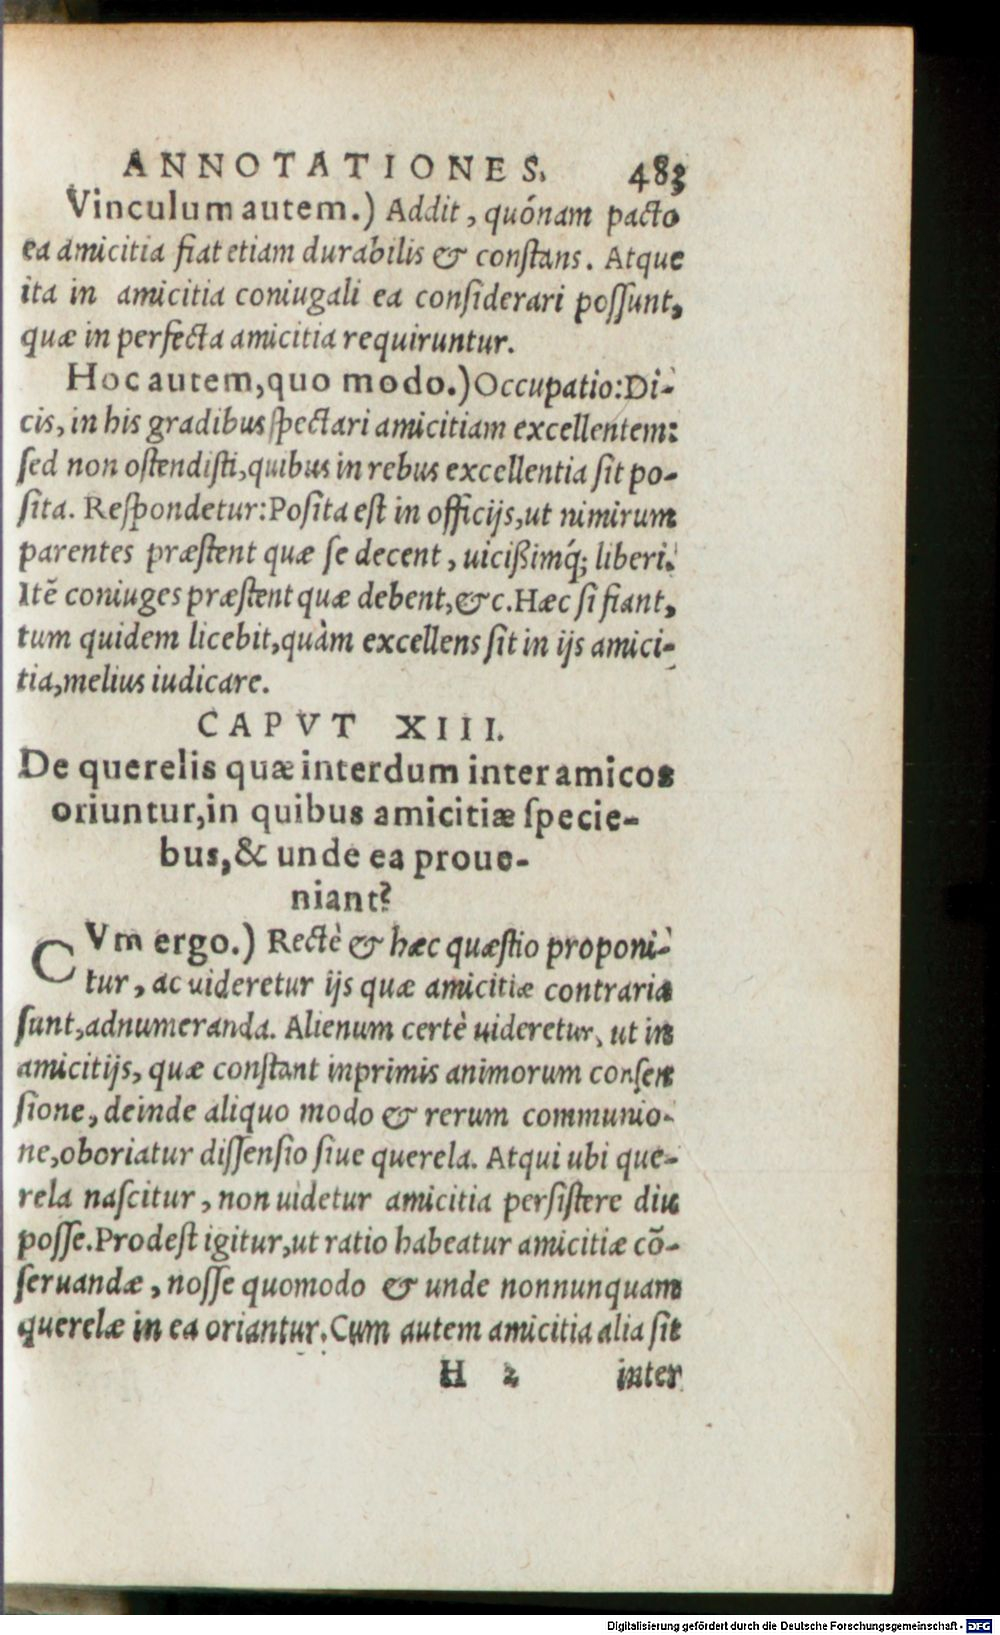 ANNOTATIONES. 483
Vinculum autem.) Addit, quónam pacto
ea amicitia fiat etiam durabilis & conſtans. Atque
ita in amicitia coniugali ea conſiderari poſſunt,
quæ in perfecta amicitia requiruntur.
Hoc autem, quo modo.) Occupatio: Di-
cis, in his gradibus ſpectari amicitiam excellentem:
ſed non oſtendiſti, quibus in rebus excellentia ſit po-
ſita. Reſpondetur: Poſita eſt in officijs, ut nimirum
parentes præſtent quæ ſe decent, uicißimq́; liberi.
Itē coniuges præſtent quæ debent, &c. Hæc ſi fiant,
tum quidem licebit, quàm excellens ſit in ijs amici-
tia, melius iudicare.
CAPVT XIII.
De querelis quæ interdum inter amicos
oriuntur, in quibus amicitiæ ſpecie-
bus, & unde ea proue-
niant?
CVm ergo.) Rectè & hæc quæſtio proponi-
tur, ac uideretur ijs quæ amicitiæ contraria
ſunt, adnumeranda. Alienum certè uideretur, ut in
amicitijs, quæ conſtant inprimis animorum conſen
ſione, deinde aliquo modo & rerum communio-
ne, oboriatur diſſenſio ſiue querela. Atqui ubi que-
rela naſcitur, non uidetur amicitia perſiſtere diu
poſſe. Prodeſt igitur, ut ratio habeatur amicitiæ cō-
ſeruandæ, noſſe quomodo & unde nonnunquam
querelæ in ea oriantur. Cum autem amicitia alia ſit
H 2 inter
Digitalisierung gefördert durch die Deutsche Forschungsgemeinschaft - DFG